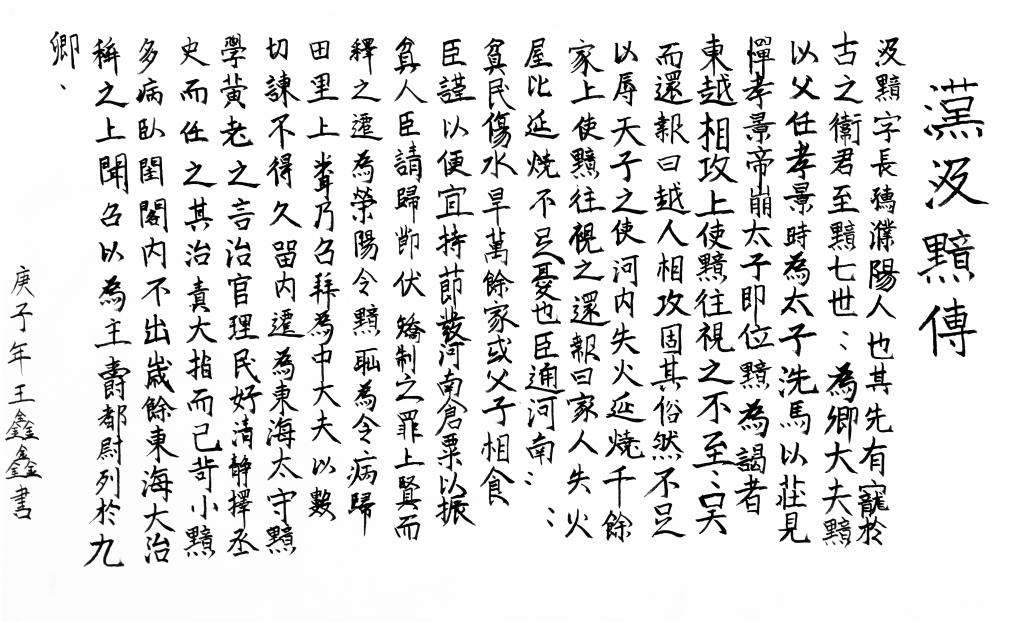 漢汲黯傳
汲黯字長孺濮陽人也其先有寵於
古之衞君至黯七世：為卿大夫黯
以父任孝景時為太子洗馬以莊見
憚孝景帝崩太子即位黯為謁者
東越相攻上使黯往視之不至：吴
而還報曰越人相攻固其俗然不足
以辱天子之使河内失火延燒千餘
家上使黯往視之還報曰家人失火
屋比延燒不足憂也臣過河南：
貧民傷水旱萬餘家或父子相食
臣謹以便宜持節發河南倉粟以振
貧人臣請歸節伏矯制之罪上賢而
釋之遷為滎陽令黯恥為令病歸
田里上聞乃召拜為中大夫以數
切諫不得久留内遷為東海太守黯
學黄老之言治官理民好清静擇丞
史而任之其治責大指而已苛小黯
多病臥閨閣内不出歲餘東海大治
稱之上聞召以為主爵都尉列於九
卿、
庚子年王鑫鑫書